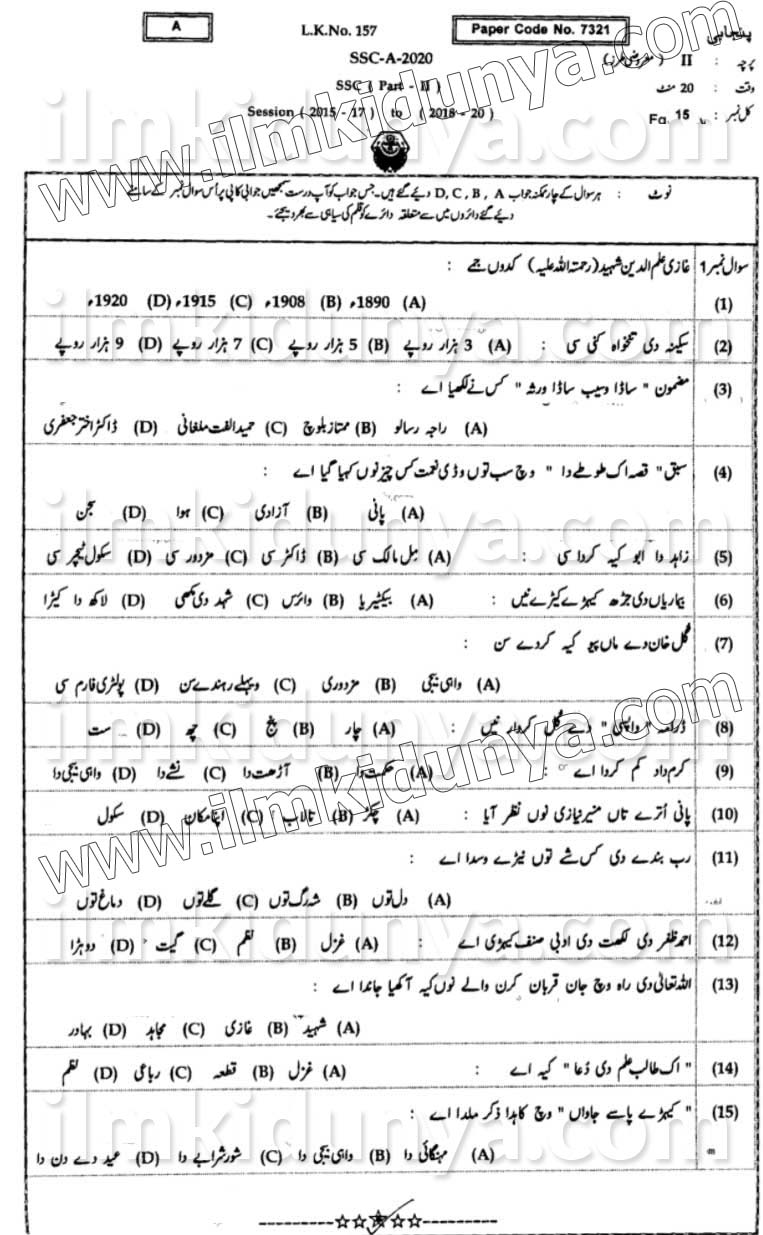 A L.K.No. 157 Paper Code No. 7321 پنجابی
SSC-A-2020 پرچہ : II (معروضی طرز)
SSC ( Part - II ) وقت : 20 منٹ
Session ( 2015 - 17 ) to ( 2018 - 20 ) کل نمبر : 15
نوٹ : ہر سوال کے چار ممکنہ جواب A ، B ، C ، D دیے گئے ہیں۔ جس جواب کو آپ درست سمجھیں جوابی کاپی پر اُس سوال نمبر کے سامنے
دیے گئے دائروں میں سے متعلقہ دائرے کو قلم کی سیاہی سے بھر دیجئے۔
سوال نمبر 1 غازی علم الدین شہید (رحمتہ اللہ علیہ) کدوں جمے :
(1) (A) 1890ء (B) 1908ء (C) 1915ء (D) 1920ء
(2) سکینہ دی تنخواہ کنی سی : (A) 3 ہزار روپے (B) 5 ہزار روپے (C) 7 ہزار روپے (D) 9 ہزار روپے
(3) مضمون " ساڈا وسیب ساڈا ورثہ " کس نے لکھیا اے :
(A) راجہ رسالو (B) ممتاز بلوچ (C) حمید الفت ملغانی (D) ڈاکٹر اختر جعفری
(4) سبق " قصہ اک طوطے دا " وچ سب توں وڈی نعمت کس چیز نوں کہیا گیا اے :
(A) پانی (B) آزادی (C) ہوا (D) سجن
(5) زاہد دا ابو کیہ کردا سی : (A) مِل مالک سی (B) ڈاکٹر سی (C) مزدور سی (D) سکول ٹیچر سی
(6) بیماریاں دی جڑھ کیہڑے کیڑے نیں : (A) بیکٹیریا (B) وائرس (C) شہد دی مکھی (D) لاکھ دا کیڑا
(7) گل خان دے ماں پیو کیہ کردے سن :
(A) واہی بیجی (B) مزدوری (C) ویہلے رہندے سن (D) پولٹری فارم سی
(8) ڈرامہ "واپسی" دے کُل کردار نیں : (A) چار (B) پنج (C) چھ (D) ست
(9) کرم داد کم کردا اے : (A) حکمت دا (B) آڑھت دا (C) نشے دا (D) واہی بیجی دا
(10) پانی اُترے تاں منیر نیازی نوں نظر آیا : (A) چکڑ (B) تالاب (C) اپنا مکان (D) سکول
(11) رب بندے دی کس شے توں نیڑے وسدا اے :
(A) دل توں (B) شہ رگ توں (C) گلے توں (D) دماغ توں
(12) احمد ظفر دی لکھت دی ادبی صنف کیہڑی اے : (A) غزل (B) نظم (C) گیت (D) دوہڑا
(13) اللہ تعالیٰ دی راہ وچ جان قربان کرن والے نوں کیہ آکھیا جاندا اے :
(A) شہید (B) غازی (C) مجاہد (D) بہادر
(14) " اک طالب علم دی دُعا " کیہ اے : (A) غزل (B) قطعہ (C) رباعی (D) نظم
(15) " کیہڑے پاسے جاواں " وچ کاہدا ذکر ملدا اے :
(A) مہنگائی دا (B) واہی بیجی دا (C) شور شرابے دا (D) عید دے دن دا
www.ilmkidunya.com